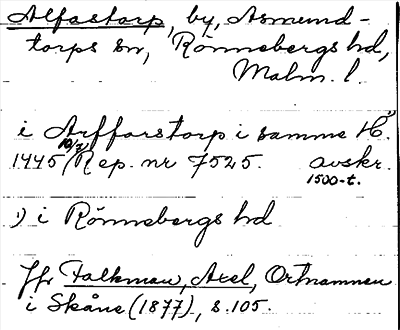 Alfastorp, by, Asmund-
torps sn, Rönnebergs hd,
Malm. l.
i Arffarstorp i samme H. 1)
1445 10/7 Rep. nr 7525. avskr.
1500-t.
1) i Rönnebergs hd
Jfr Falkman, Axel, Ortnamnen
i Skåne (1877), s. 105.